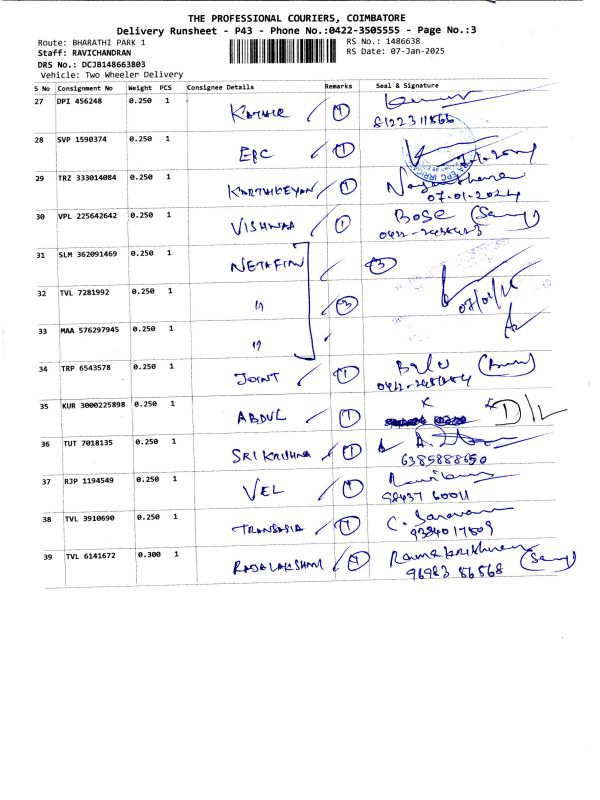 THE PROFESSIONAL COURIERS, COIMBATORE
Delivery Runsheet - P43 - Phone No.:0422-3505555 - Page No.:3
Route: BHARATHI PARK 1 RS No.: 1486638
Staff: RAVICHANDRAN RS Date: 07-Jan-2025
DRS No.: DCJB148663803
Vehicle: Two Wheeler Delivery
S No Consignment No Weight PCS Consignee Details Remarks Seal & Signature
27 DPI 456248 0.250 1 1
8122311866
28 SVP 1590374 0.250 1 EPC 1
29 TRZ 333014084 0.250 1 KARTHIKEYAN 1
07-01-2024
30 VPL 225642642 0.250 1 VISHNAA 1 BOSE
31 SLM 362091469 0.250 1 NETAFIM 3
32 TVL 7281992 0.250 1 " 3
33 MAA 576297945 0.250 1 "
34 TRP 6543578 0.250 1 JOINT 1 Balu
35 KUR 3000225898 0.250 1 ABDUL 1 D/L
36 TUT 7018135 0.250 1 SRI KRISHNA 1
6385888650
37 RJP 1194549 0.250 1 VEL 1
98437 60011
38 TVL 3910690 0.250 1 TRANSASIA 1 C. Saravan
9384017809
39 TVL 6141672 0.300 1 RAJALAKSHMI 1 Ramakrishnan
96983 56568